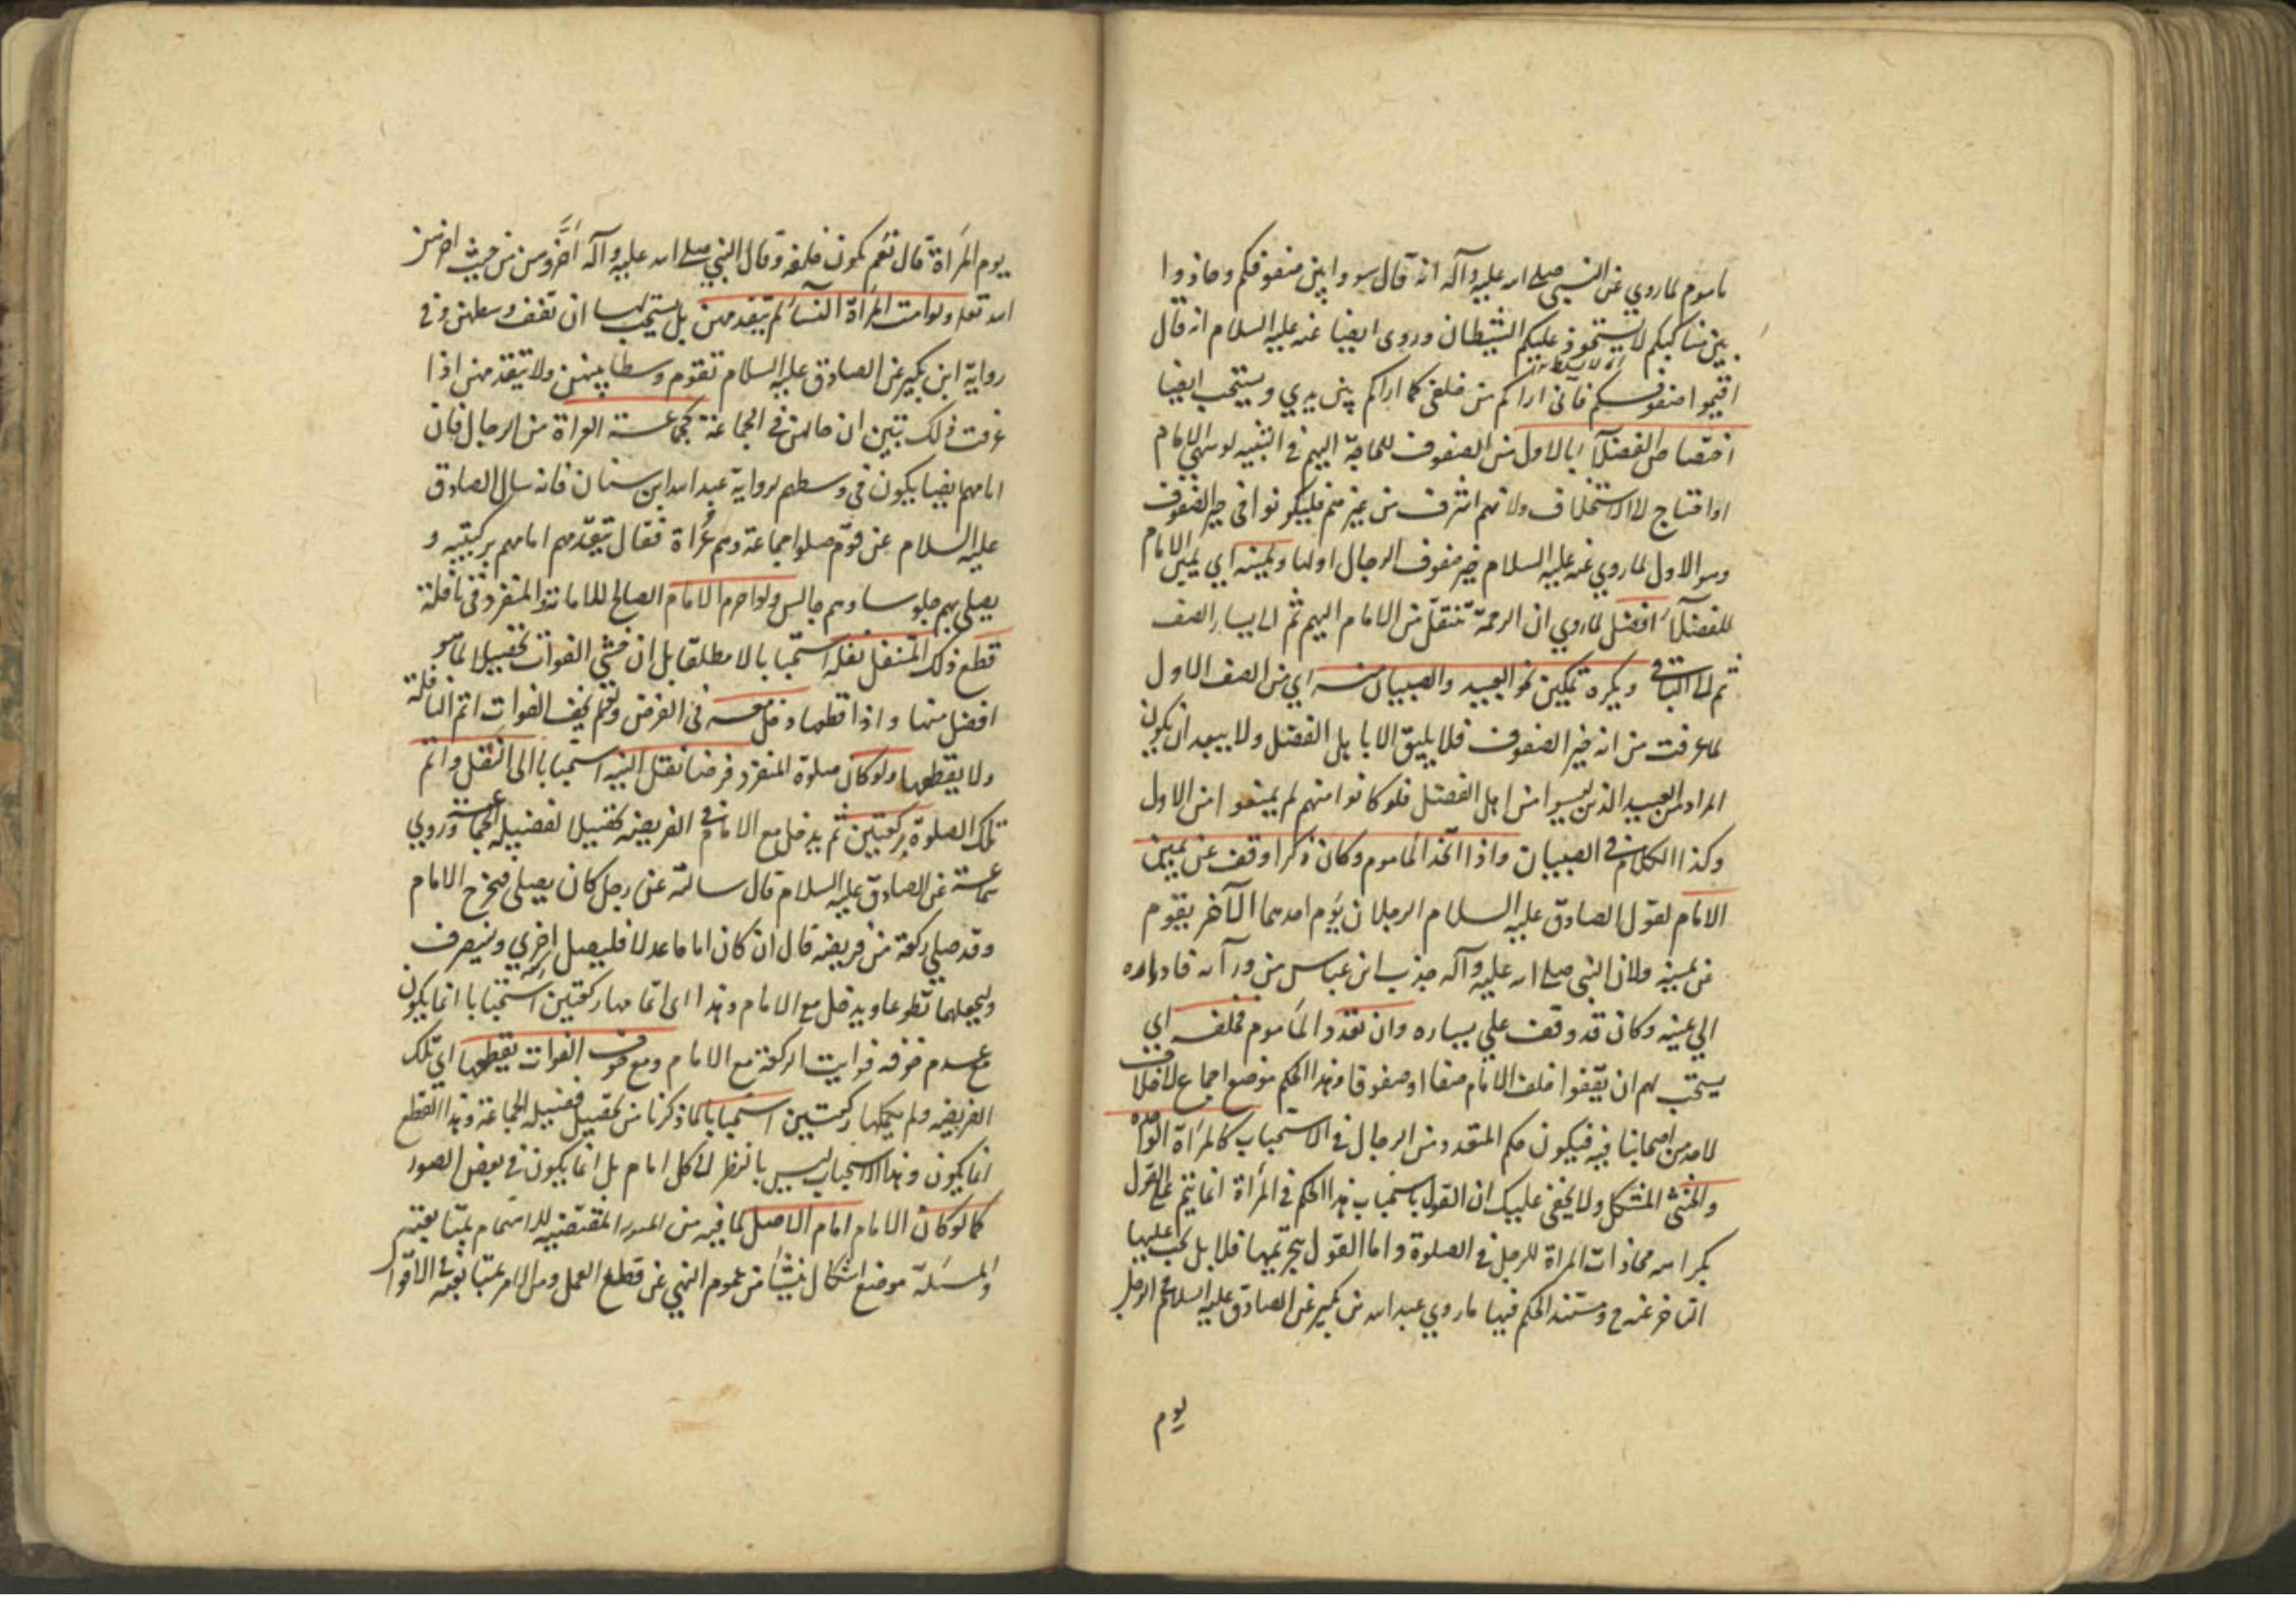 ماموم لما روي عن النبي صلى الله عليه وآله انه قال سووا بين صفوفكم وحاذوا
بين مناكبكم لا يستحوذ عليكم الشيطان وروى ايضا عنه عليه السلام انه قال
اقيموا صفوفكم فاني اراكم من خلفي كما اراكم بين يدي ويستحب ايضا
اختصاص الفضلآء بالاول من الصفوف للحاجة اليهم في التنبيه لو سهى الامام
او احتاج لا الاستخلاف ولانهم اشرف من غيرهم فليكونوا في خير الصفوف
وهو الاول لما روي عنه عليه السلام خير صفوف الرجال اولها ويمينه اي يمين الامام
للفضلآء افضل لما روي ان الرحمة تنتقل من الامام اليهم ثم الى يسار الصف
ثم الى الباقي ويكره تمكين نحو العبيد والصبيان منه اي من الصف الاول
لما عرفت من انه خير الصفوف فلا يليق الا باهل الفضل ولا يبعد ان يكون
المراد من العبيد الذين ليسوا من اهل الفضل فلو كانوا منهم لم يمنعوا من الاول
وكذا الكلام في الصبيان واذا اتحد الماموم وكان ذكرا وقف عن يمين
الامام لقول الصادق عليه السلام الرجلان يؤم احدهما الآخر يقوم
عن يمينه ولان النبي صلى الله عليه وآله جذب ابن عباس من ورآئه فاداره
الي يمينه وكان قد وقف علي يساره وان تعدد الماموم فخلفه اي
يستحب لهم ان يقفوا خلف الامام صفا او صفوفا وهذا الحكم موضع اجماع لا خلاف
لاحد من اصحابنا فيه فيكون حكم المتعدد من الرجال في الاستحباب كالمرآة الواحده
والخنثى المشكل ولا يخفى عليك ان القول باستحباب هذا الحكم في المرأة انما يتم على القول
بكراهة محاذات المراة للرجل في الصلوة واما القول بتحريمها فلا بل يجب عليها
التاخر عنه ح ومستند الحكم فيها ما روي عبد الله بن بكير عن الصادق عليه السلام في الرجل
يوم
يوم المرأة قال نعم تكون خلفه وقال النبي صلى الله عليه وآله أخروهن من حيث اخرهن
الله تعلا ولو امت المرأة النسآء لم تتقدمهن بل يستحب لها ان تقف وسطهن وفي
رواية ابن بكير عن الصادق عليه السلام تقوم وسطا بينهن ولا تتقدمهن اذا
عرفت ذلك تبين ان حالهن في الجماعة كجماعة العراة من الرجال فان
امامهم ايضا يكون في وسطهم لرواية عبد الله ابن سنان فانه سال الصادق
عليه السلام عن قوم صلوا جماعة وهم عُراة فقال يتقدمهم امامهم بركبتيه و
يصلي بهم جلوسا وهم جالس ولو احرم الامام الصالح للامامة والمنفرد في نافلة
قطع ذلك المتنفل نفله استحبابا لا مطلقا بل ان خشي الفوات تحصيلا لما هو
افضل منها واذا قطعها دخل معه في الفرض ولو لم يخف الفوات اتم النافلة
ولا يقطعها ولو كان صلوة المنفرد فرضا نقل النية استحبابا الى النفل واتم
تلك الصلوة ركعتين ثم يدخل مع الامام في الفريضه تحصيلا لفضيلة الجماعة وروي
سماعة عن الصادق عليه السلام قال سالته عن رجل كان يصلي فخرج الامام
وقد صلي ركعة من فريضه قال ان كان اماما عدلا فليصل اخري وينصرف
وليجعلهما تطوعا ويدخل مع الامام وهذا اي اتمامها ركعتين استحبابا انما يكون
مع عدم خوفه فوايت الركعة مع الامام ومع خوف الفوات يقطعها اي تلك
الفريضه ولم يكملها ركعتين استحبابا لما ذكرنا من تحصيل فضيلة الجماعة وهذا القطع
انما يكون وهذا الاستحباب ليس بالنظر الى كل امام بل انما يكون في بعض الصور
كما لو كان الامام امام الاصل لما فيه من المقتضيه للاهتمام بمتابعته
والمسئلة موضع اشكال ينشأ من عموم النهي عن قطع العمل ومن الامر بمتابعته في الاقوا